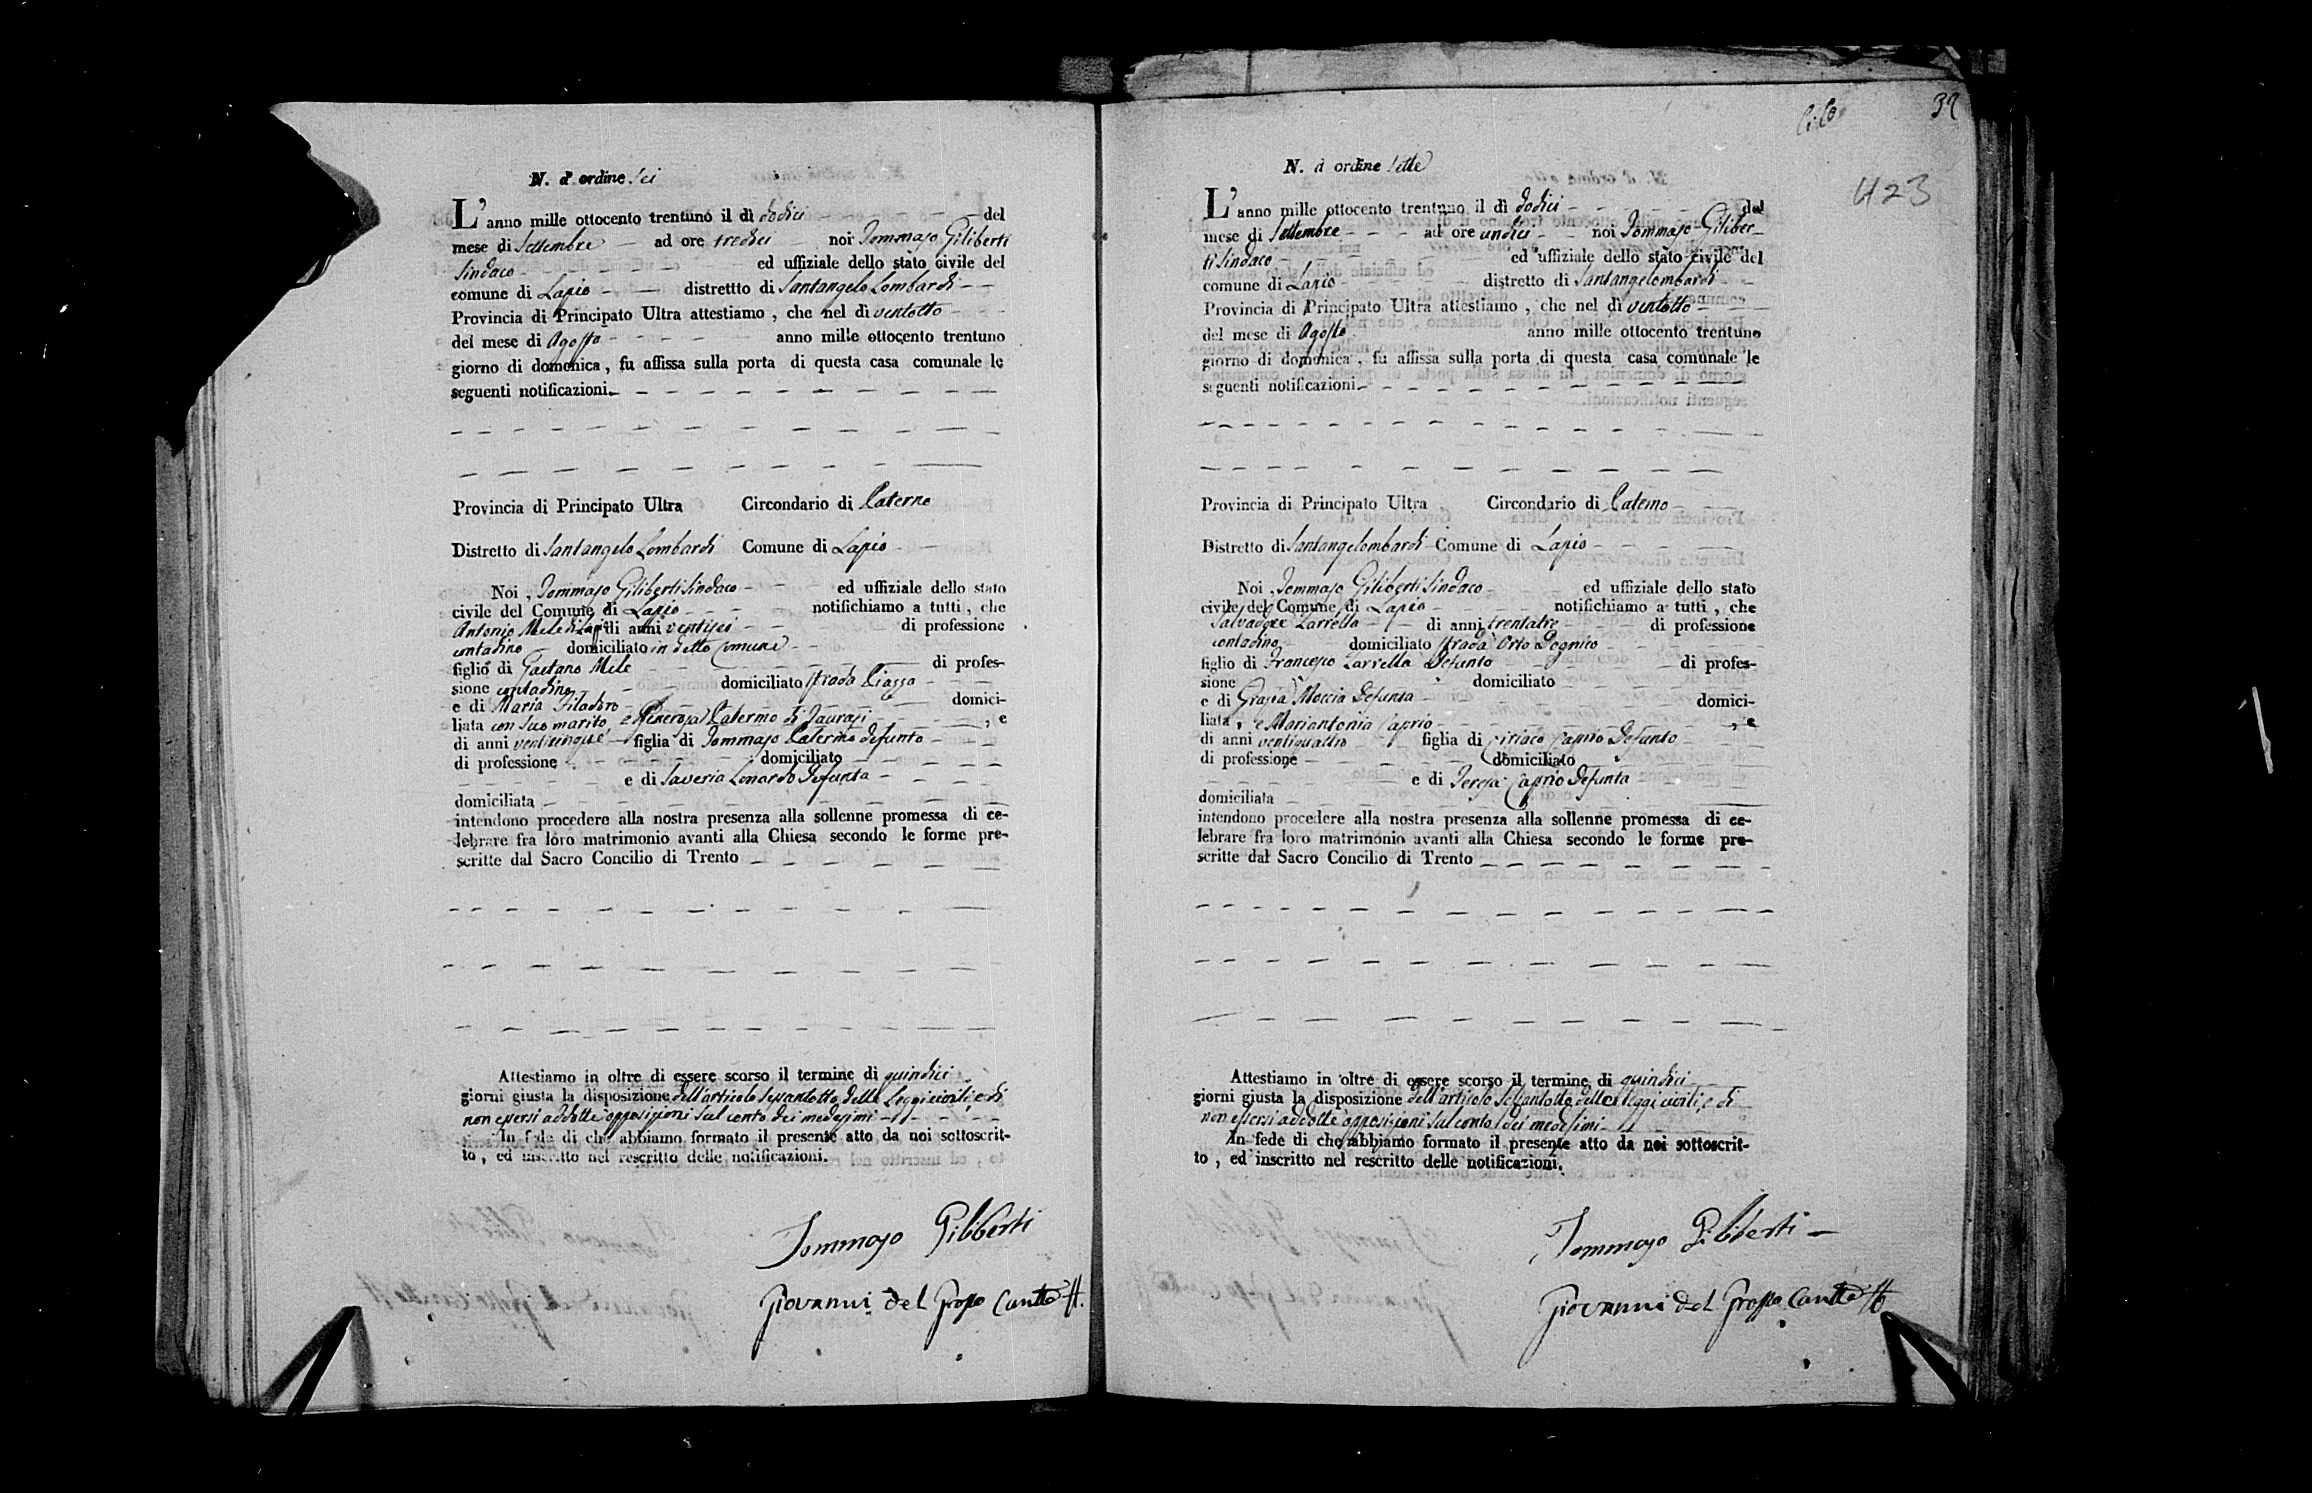 N. d' ordine Sei
L' anno mille ottocento trentuno il dì dodici del
mese di Settembre ad ore tredici noi Tommaso Giliberti
Sindaco ed uffiziale dello stato civile del
comune di Lapio distrettto di Santangelo Lombardi
Provincia di Principato Ultra attestiamo , che nel dì ventotto
del mese di Agosto anno mille ottocento trentuno
giorno di domenica , fu affissa sulla porta di questa casa comunale le
seguenti notificazioni.
Provincia di Principato Ultra Circondario di Paterno
Distretto di Santangelo Lombardi Comune di Lapio
Noi , Tommaso Giliberti Sindaco ed uffiziale dello stato
civile del Comune di Lapio notifichiamo a tutti , che
Antonio Mele di Lapio di anni ventisei di professione
contadino domiciliato in detto Comune
figlio di Gaetano Mele di profes-
sione contadino domiciliato strada Piazza
e di Maria Filadoro domici-
liata con suo marito, e Generosa Palermo di Taurasi , e
di anni venticinque figlia di Tommaso Palermo defunto
di professione domiciliato
e di Saveria Lonardo defunta
domiciliata
intendono procedere alla nostra presenza alla sollenne promessa di ce-
lebrare fra loro matrimonio avanti alla Chiesa secondo le forme pre-
scritte dal Sacro Concilio di Trento
Attestiamo in oltre di essere scorso il termine di quindici
giorni giusta la disposizione dell'articolo Sessantotto delle Leggi civili, e di
non essersi addotte opposizioni sul conto dei medesimi
In fede di che abbiamo formato il presente atto da noi sottoscrit-
to , ed inscritto nel rescritto delle notificazioni.
Tommaso Giliberti
Giovanni del Grosso
39
423
N. d ordine Sette
L' anno mille ottocento trentuno il dì dodici del
mese di Settembre ad ore undici noi Tommaso Giliber-
ti Sindaco ed uffiziale dello stato civile del
comune di Lapio distretto di Santangelombardi
Provincia di Principato Ultra attestiamo , che nel dì ventotto
del mese di Agosto anno mille ottocento trentuno
giorno di domenica , fu affissa sulla porta di questa casa comunale le
seguenti notificazioni
Provincia di Principato Ultra Circondario di Paterno
Distretto di Santangelombardi Comune di Lapio
Noi , Tommaso Giliberti Sindaco ed uffiziale dello stato
civile del Comune di Lapio notifichiamo a tutti , che
Salvadore Zarrella di anni trentatre di professione
contadino domiciliato strada Orto Dognico
figlio di Francesco Zarrella defunto di profes-
sione domiciliato
e di Grazia Moccia defunta domici-
liata , e Mariantonia Caprio , e
di anni ventiquattro figlia di Ciriaco Caprio defunto
di professione domiciliato
e di Teresa Caprio defunta
domiciliata
intendono procedere alla nostra presenza alla sollenne promessa di ce-
lebrare fra loro matrimonio avanti alla Chiesa secondo le forme pre-
scritte dal Sacro Concilio di Trento
Attestiamo in oltre di essere scorso il termine di quindici
giorni giusta la disposizione dell'articolo Sessantotto delle Leggi civili, e di
non essersi addotte opposizioni sul conto dei medesimi
In fede di che abbiamo formato il presente atto da noi sottoscrit-
to , ed inscritto nel rescritto delle notificazioni.
Tommaso Giliberti
Giovanni del Grosso